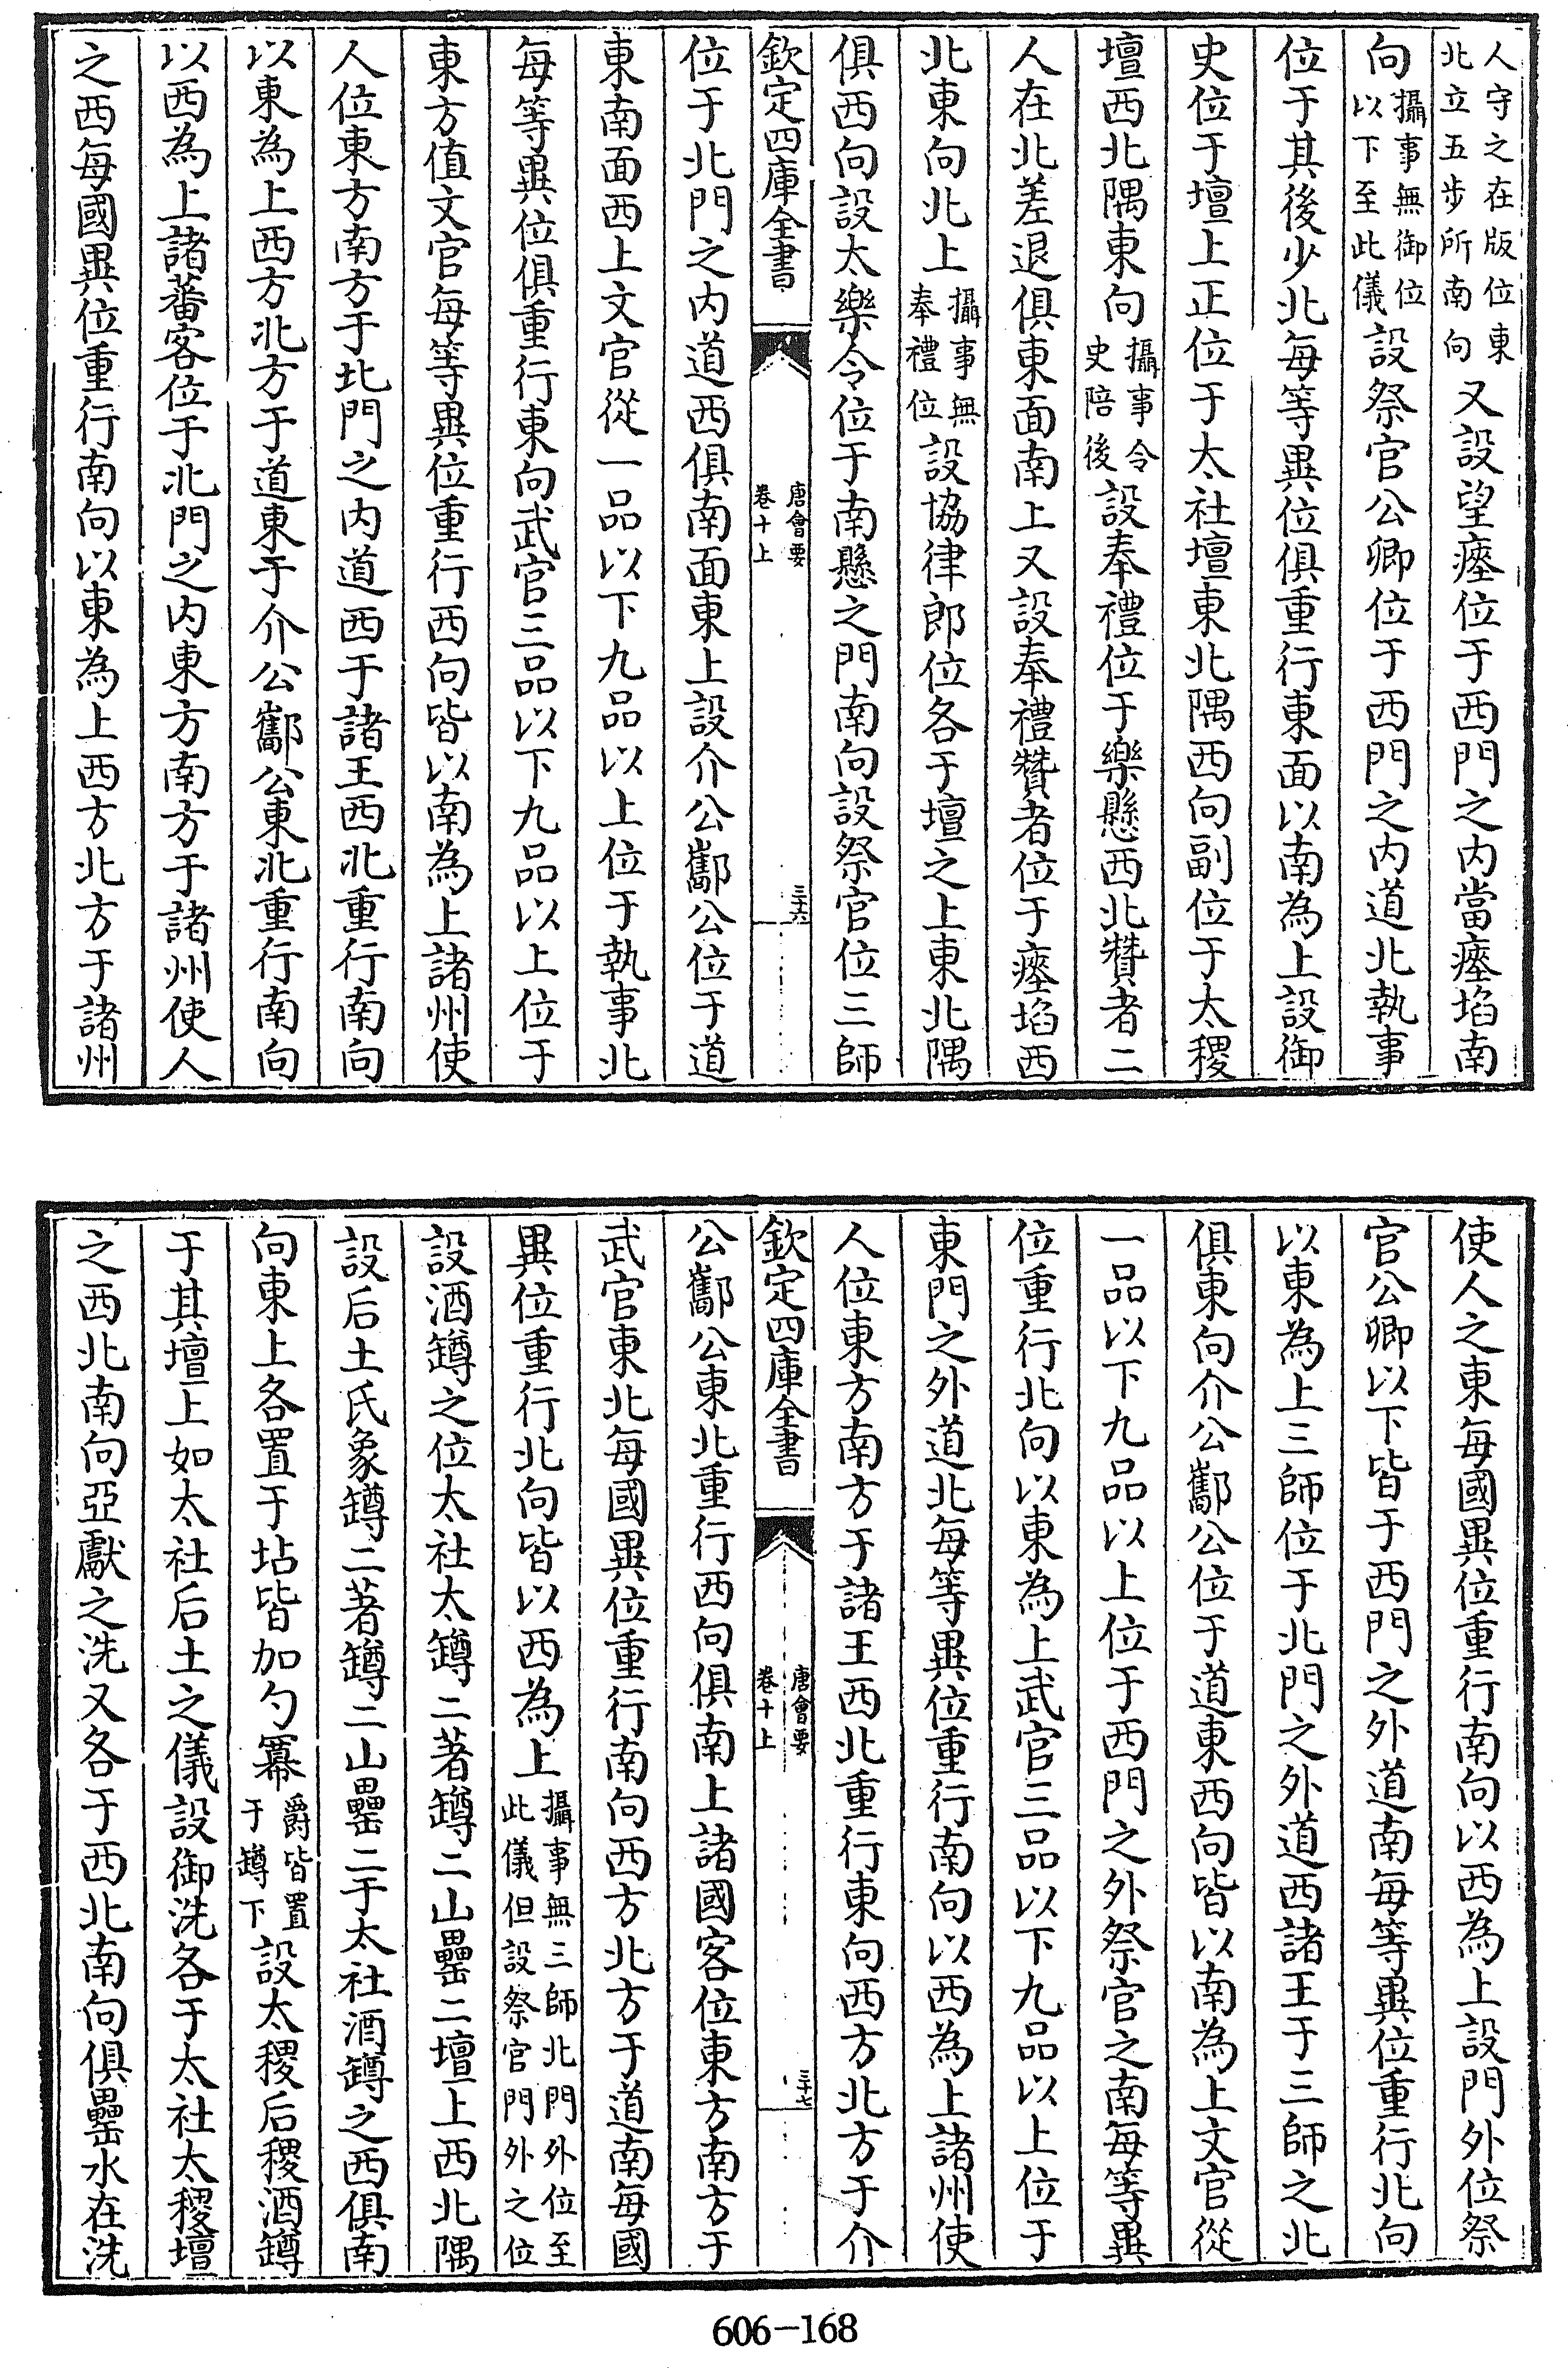 人守之在版位東北立五步所南向又設望瘞位于西門之内當瘞埳南
向攝事無御位以下至此儀設祭官公卿位于西門之内道北執事
位于其後少北每等異位俱重行東面以南為上設御
史位于壇上正位于太社壇東北隅西向副位于太稷
壇西北隅東向攝事令史陪後設奉禮位于樂懸西北贊者二
人在北差退俱東面南上又設奉禮贊者位于瘞埳西
北東向北上攝事無奉禮位設協律郎位各于壇之上東北隅
俱西向設太樂令位于南懸之門南向設祭官位三師
欽定四庫全書
唐會要
卷十上
三十六
位于北門之内道西俱南面東上設介公酅公位于道
東南面西上文官從一品以下九品以上位于執事北
每等異位俱重行東向武官三品以下九品以上位于
東方值文官每等異位重行西向皆以南為上諸州使
人位東方南方于北門之内道西于諸王西北重行南向
以東為上西方北方于道東于介公酅公東北重行南向
以西為上諸蕃客位于北門之内東方南方于諸州使人
之西每國異位重行南向以東為上西方北方于諸州
使人之東每國異位重行南向以西為上設門外位祭
官公卿以下皆于西門之外道南每等異位重行北向
以東為上三師位于北門之外道西諸王于三師之北
俱東向介公酅公位于道東西向皆以南為上文官從
一品以下九品以上位于西門之外祭官之南每等異
位重行北向以東為上武官三品以下九品以上位于
東門之外道北每等異位重行南向以西為上諸州使
人位東方南方于諸王西北重行東向西方北方于介
欽定四庫全書
唐會要
卷十上
三十七
公酅公東北重行西向俱南上諸國客位東方南方于
武官東北每國異位重行南向西方北方于道南每國
異位重行北向皆以西為上攝事無三師北門外位至此儀但設祭官門外之位
設酒罇之位太社太罇二著罇二山罍二壇上西北隅
設后土氏象罇二著罇二山罍二于太社酒罇之西俱南
向東上各置于坫皆加勺羃爵皆置于罇下設太稷后稷酒罇
于其壇上如太社后土之儀設御洗各于太社太稷壇
之西北南向亞獻之洗又各于西北南向俱罍水在洗
606-168